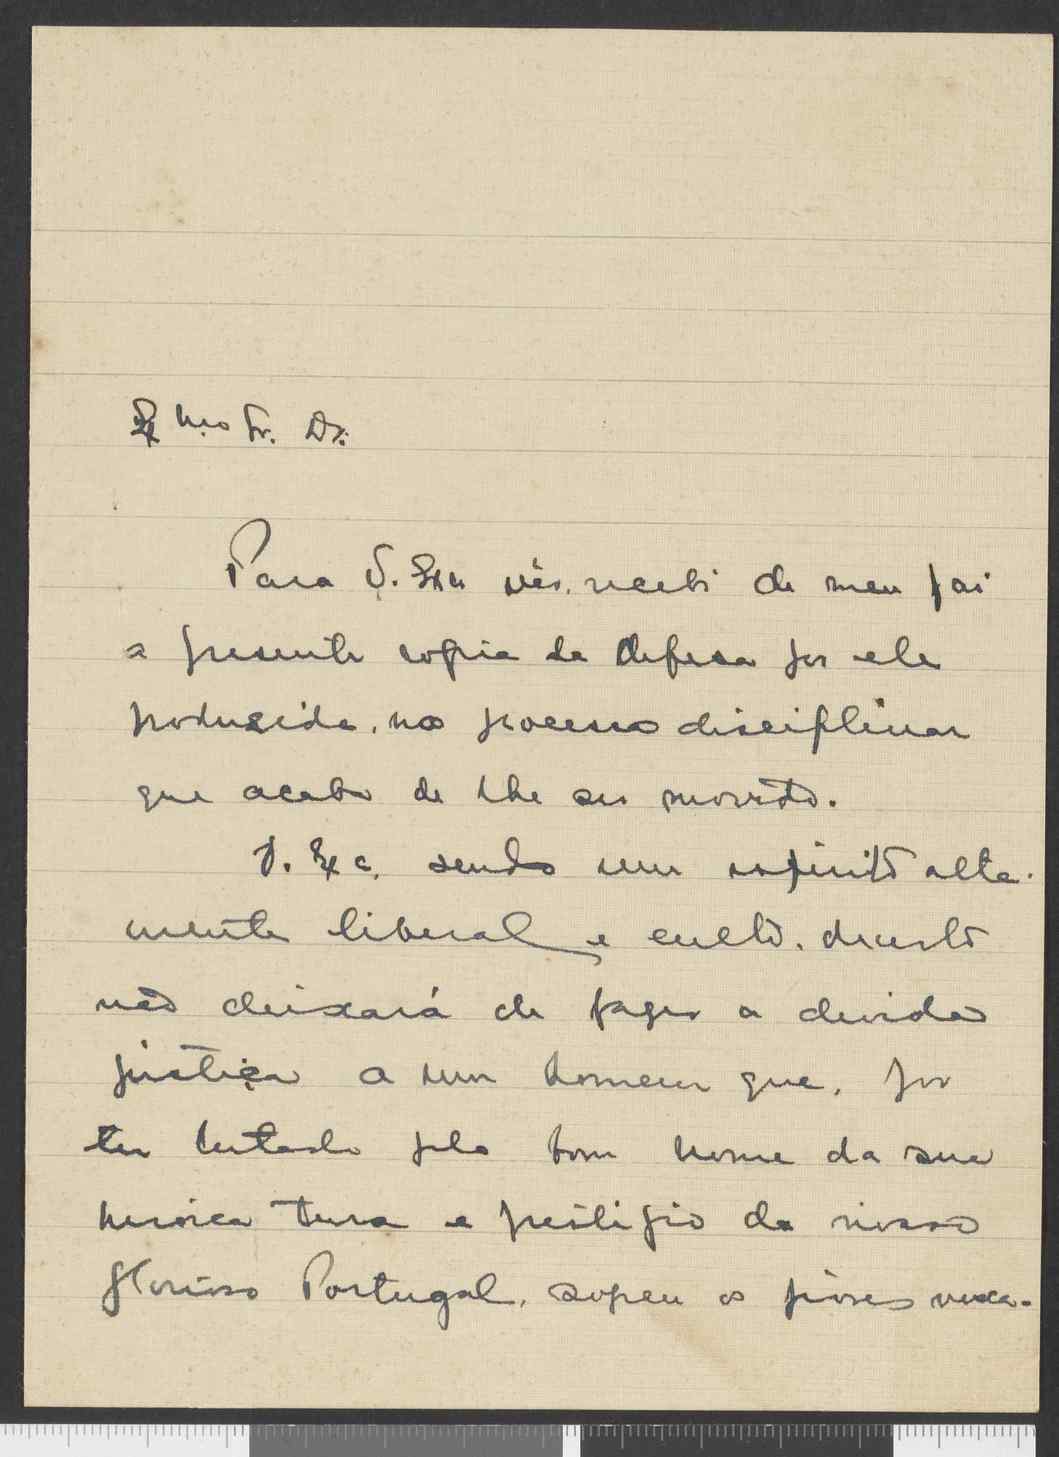 Exmo Sr. Dr.
Para V. Exa vêr, recebi de meu pai
a presente copia da defesa por ele
produzida, no processo disciplinar
que acaba de lhe ser movido.
V. Exa, sendo um espirito alta-
mente liberal e culto, decerto
não deixará de fazer a devida
justiça a um homem que, por
ter lutado pelo bom nome da sua
heroica terra e prestigio do nosso
glorioso Portugal, sofreu os piores vexa-